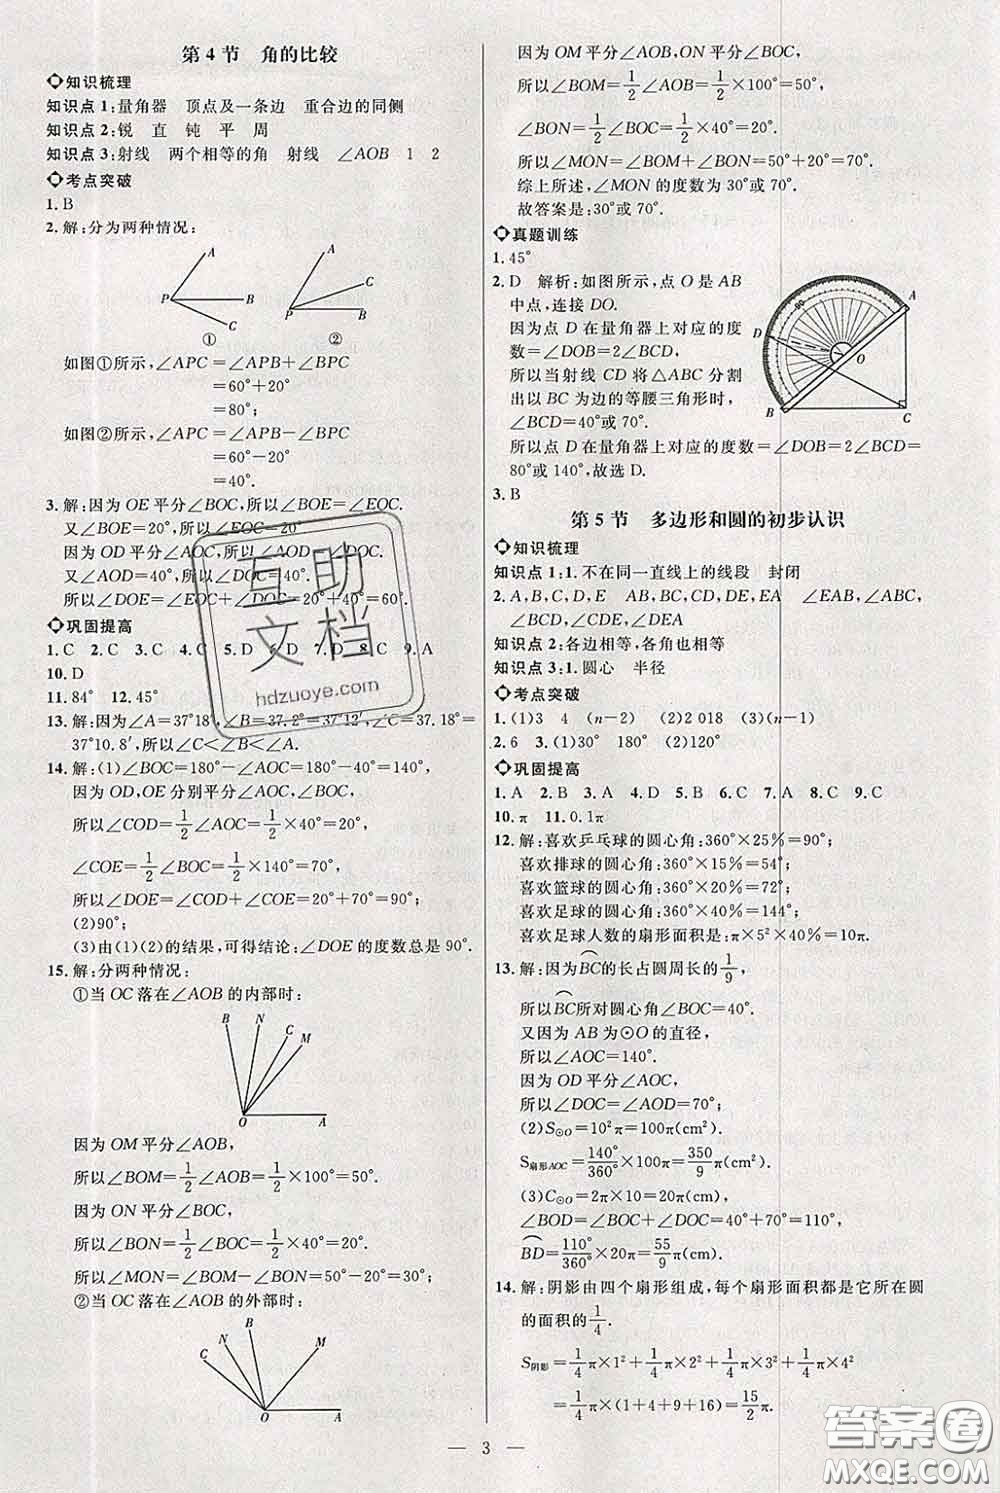 第4节　角的比较
知识梳理
知识点1:量角器　顶点及一条边　重合边的同侧
知识点2:锐　直　钝　平　周
知识点3:射线　两个相等的角　射线　∠AOB　1　2
考点突破
1.B
2.解:分为两种情况:
A
P
B
C
①
A
C
P
B
②
如图①所示,∠APC=∠APB+∠BPC
=60°+20°
=80°;
如图②所示,∠APC=∠APB-∠BPC
=60°-20°
=40°.
3.解:因为OE平分∠BOC,所以∠BOE=∠EOC.
又∠BOE=20°,所以∠EOC=20°.
因为OD平分∠AOC,所以∠AOD=∠DOC.
又∠AOD=40°,所以∠DOC=40°.
所以∠DOE=∠EOC+∠DOC=20°+40°=60°.
巩固提高
1.C 2.C 3.C 4.C 5.D 6.D 7.D 8.C 9.A
10.D
11.84° 12.45°
13.解:因为∠A=37°18′,∠B=37.2°=37°12′,∠C=37.18°=
37°10.8′,所以∠C<∠B<∠A.
14.解:(1)∠BOC=180°-∠AOC=180°-40°=140°,
因为OD,OE分别平分∠AOC,∠BOC,
所以∠COD=1/2∠AOC=1/2×40°=20°,
∠COE=1/2∠BOC=1/2×140°=70°,
所以∠DOE=∠COD+∠COE=20°+70°=90°;
(2)90°;
(3)由(1)(2)的结果,可得结论:∠DOE的度数总是90°.
15.解:分两种情况:
①当OC落在∠AOB的内部时:
B
N
C
M
O
A
因为OM平分∠AOB,
所以∠BOM=1/2∠AOB=1/2×100°=50°.
因为ON平分∠BOC,
所以∠BON=1/2∠BOC=1/2×40°=20°.
所以∠MON=∠BOM-∠BON=50°-20°=30°.
②当OC落在∠AOB的外部时:
B
N
C
M
O
A
因为OM平分∠AOB,ON平分∠BOC,
所以∠BOM=1/2∠AOB=1/2×100°=50°.
∠BON=1/2∠BOC=1/2×40°=20°.
所以∠MON=∠BOM+∠BON=50°+20°=70°.
综上所述,∠MON的度数为30°或70°.
故答案是:30°或70°.
真题训练
1.45°
2.D　解析:如图所示,点O是AB
中点,连接DO.
因为点D在量角器上对应的度
数=∠DOB=2∠BCD,
所以当射线CD将△ABC分割
出以BC为边的等腰三角形时,
∠BCD=40°或70°.
所以点D在量角器上对应的度数=∠DOB=2∠BCD=
80°或140°,故选D.
A
D
O
B
C
90
3.B
第5节　多边形和圆的初步认识
知识梳理
知识点1:1.不在同一直线上的线段　封闭
2.A,B,C,D,E　AB,BC,CD,DE,EA　∠EAB,∠ABC,
∠BCD,∠CDE,∠DEA
知识点2:各边相等,各角也相等
知识点3:1.圆心　半径
考点突破
1.(1)3　4　(n-2)　(2)2 018　(3)(n-1)
2.6　3.(1)30°　180°　(2)120°
巩固提高
1.A 2.B 3.A 4.D 5.C 6.B 7.C 8.C 9.C
10.π 11.0.1π
12.解:喜欢乒乓球的圆心角:360°×25%=90°;
喜欢排球的圆心角:360°×15%=54°;
喜欢篮球的圆心角:360°×20%=72°;
喜欢足球的圆心角:360°×40%=144°;
喜欢足球人数的扇形面积是:π×5²×40%=10π.
13.解:因为⌒BC的长占圆周长的1/9,
所以⌒BC所对圆心角∠BOC=40°.
又因为AB为⊙O的直径,
所以∠AOC=140°.
因为OD平分∠AOC,
所以∠DOC=∠AOD=70°;
(2)S⊙O=10²π=100π(cm²).
S扇形AOC=140°/360°×100π=350/9π(cm²).
(3)C⊙O=2π×10=20π(cm),
∠BOD=∠BOC+∠DOC=40°+70°=110°,
⌒BD=110°/360°×20π=55/9π(cm).
14.解:阴影由四个扇形组成,每个扇形面积都是它所在圆
的面积的1/4.
S阴影=1/4π×1²+1/4π×2²+1/4π×3²+1/4π×4²
=1/4π×(1+4+9+16)=15/2π.
— 3 —
互助
文档
hdzuoye.com
答案圈
MXQE.COM